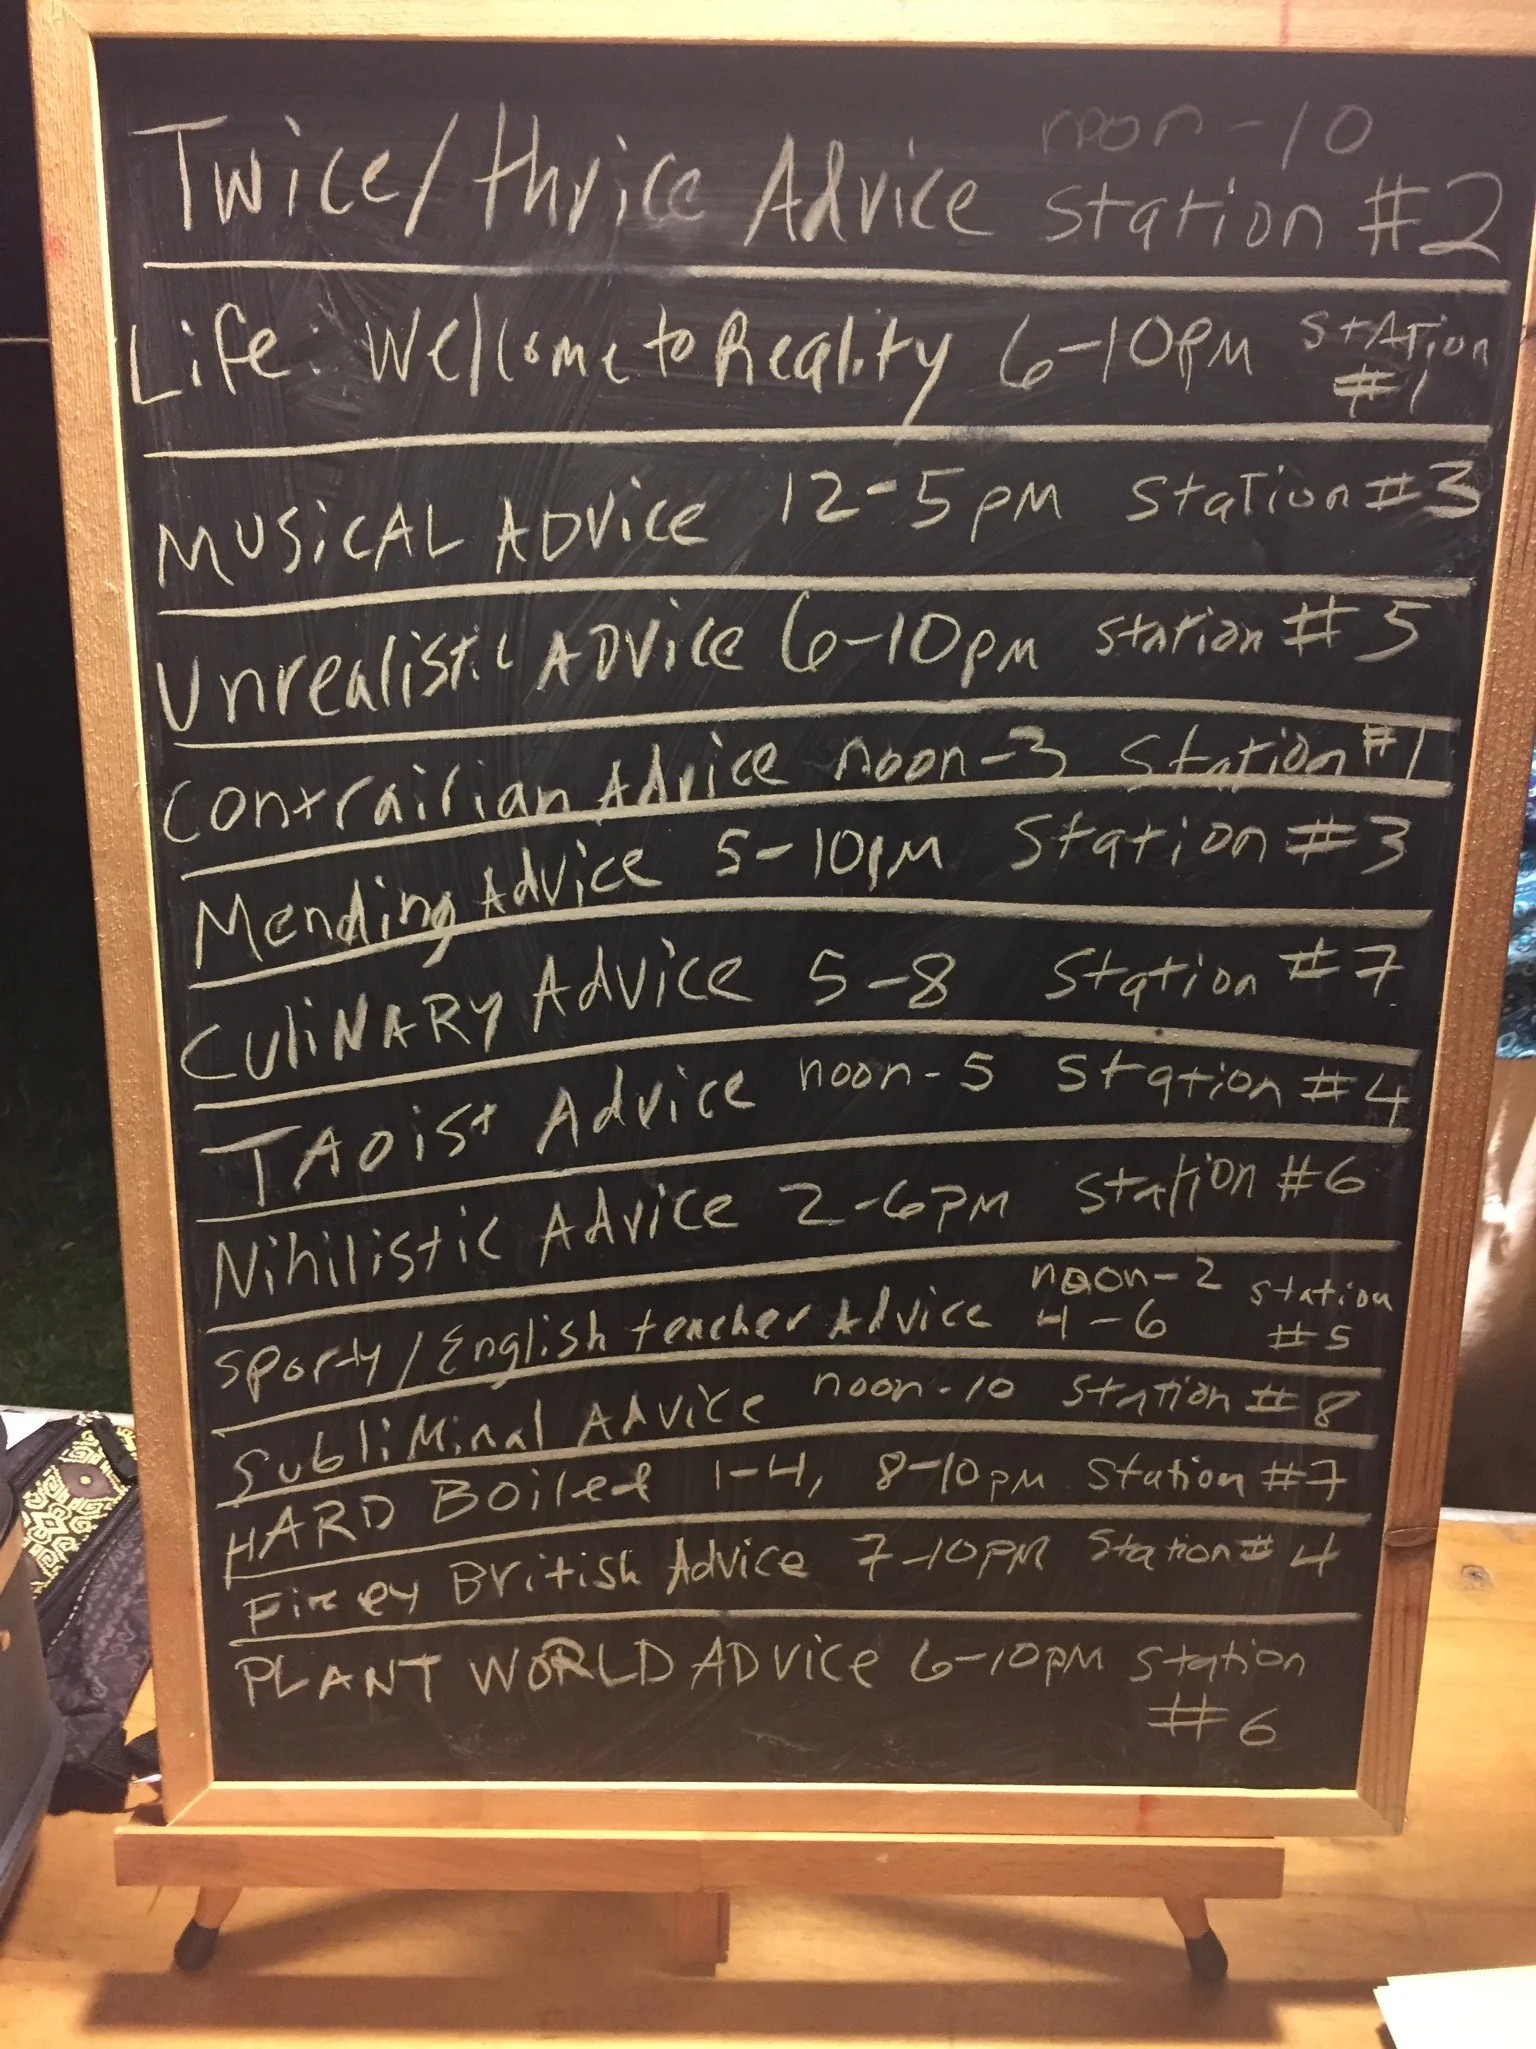 Twice/thrice Advice noon-10 Station #2
Life: Welcome to Reality 6-10PM Station #1
MUSICAL ADVICE 12-5PM Station #3
Unrealistic ADVICE 6-10PM Station #5
Contrairian Advice noon-3 Station #1
Mending Advice 5-10PM Station #3
CuliNARY Advice 5-8 Station #7
TAOist Advice noon-5 Station #4
Nihilistic Advice 2-6PM Station #6
Sporty/English teacher Advice noon-2 4-6 Station #5
SubliMinal Advice noon-10 Station #8
HARD Boiled 1-4, 8-10PM Station #7
British Advice 7-10PM Station #4
PLANT WORLD ADVICE 6-10PM Station #6